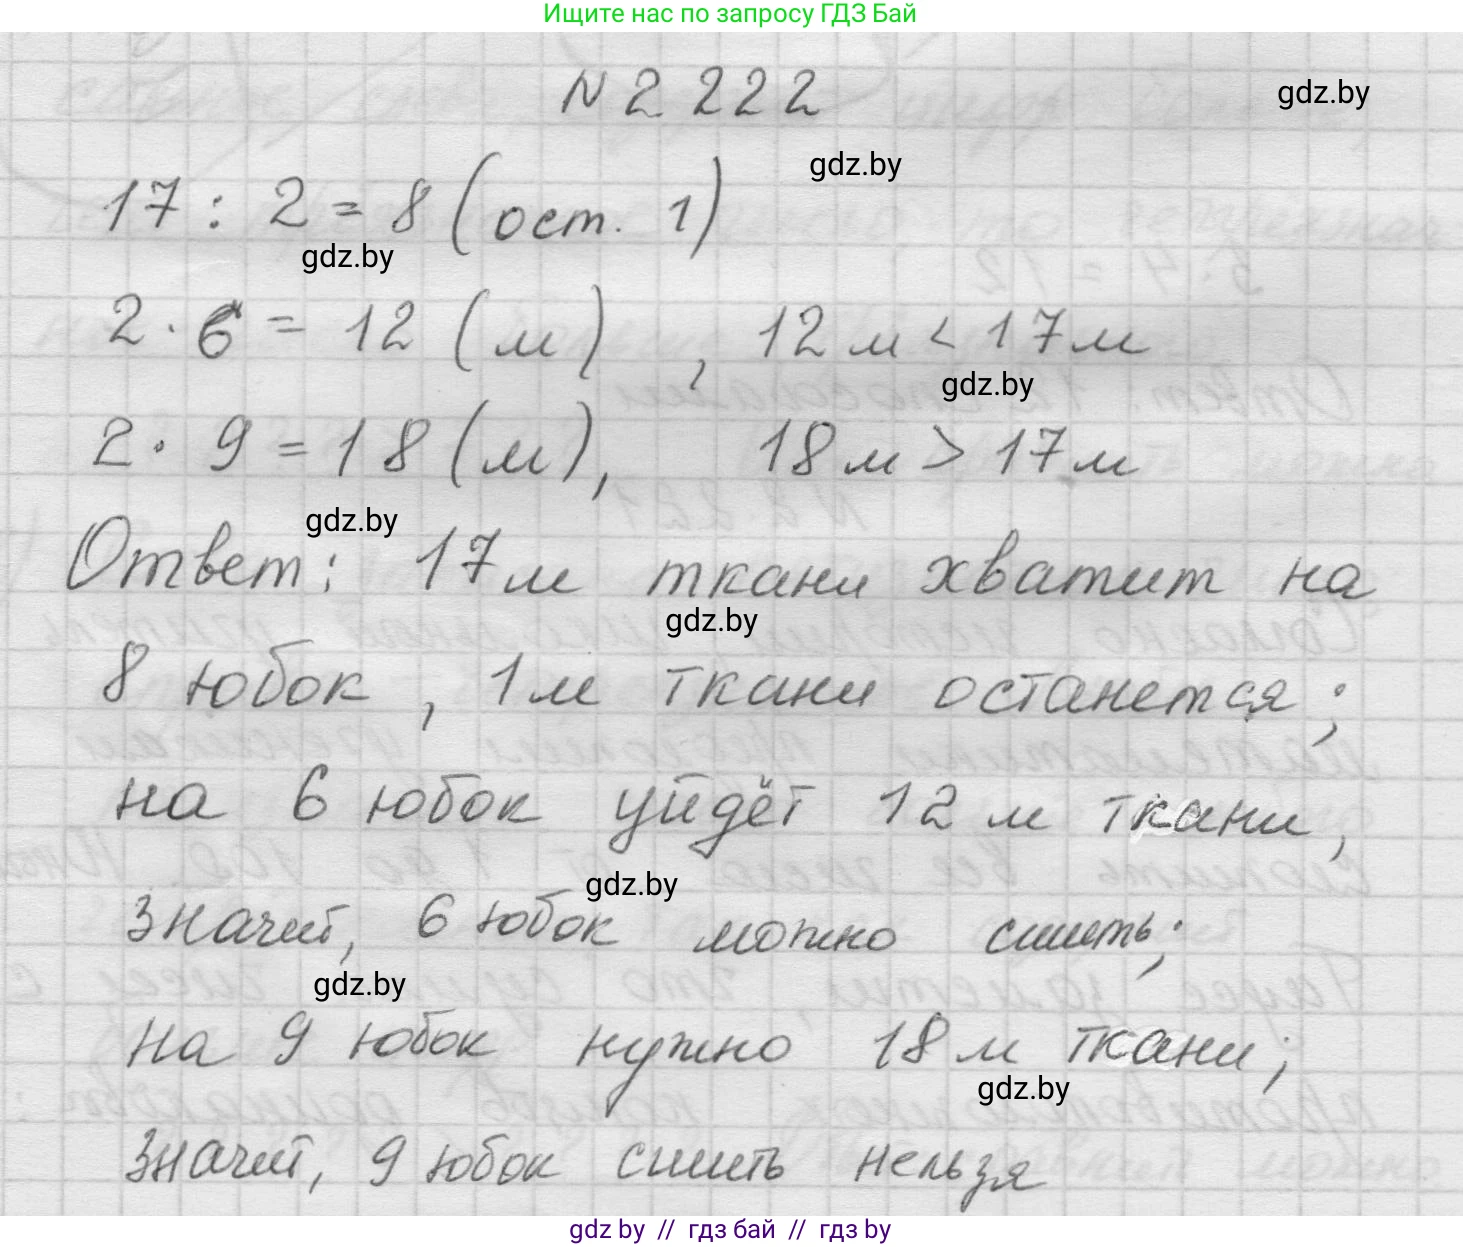 Ищите нас по запросу ГДЗ Бай
N 2.222
gdz.by
gdz.by
17 : 2 = 8 (ост. 1)
gdz.by
2 · 6 = 12 (м) , 12 м < 17 м
gdz.by
2 · 9 = 18 (м), 18 м > 17 м
gdz.by
Ответ: 17 м ткани хватит на
gdz.by
8 юбок, 1 м ткани останется;
на 6 юбок уйдёт 12 м ткани,
gdz.by
значит, 6 юбок можно сшить;
gdz.by
на 9 юбок нужно 18 м ткани;
gdz.by
значит, 9 юбок сшить нельзя
gdz by // гдз бай // гдз by